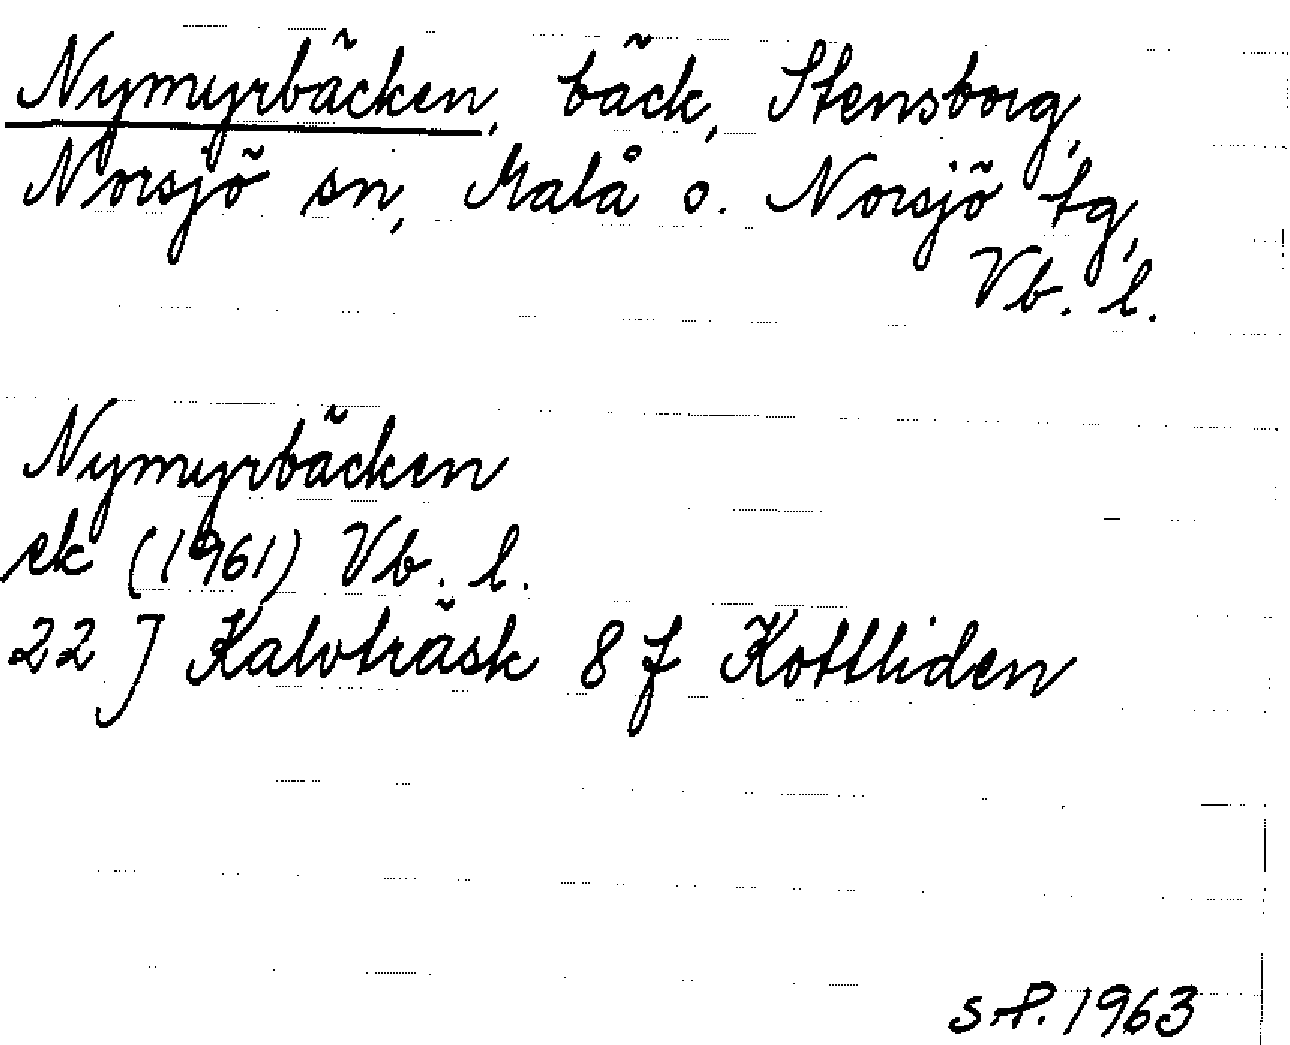 Nymyrbäcken, bäck, Stensborg,
Norsjö sn, Malå o. Norsjö tg,
Vb. l.
Nymyrbäcken
ek (1961) Vb. l.
22 J Kalvträsk 8 f Kottliden
S.P. 1963